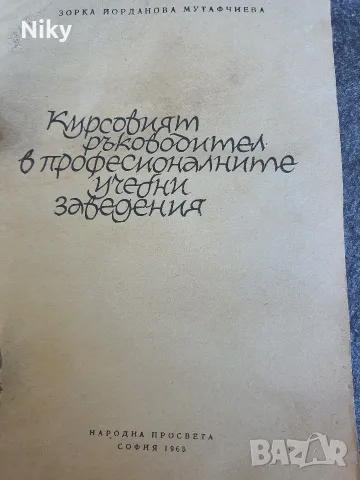 Niky
ЗОРКА ЙОРДАНОВА МУТАФЧИЕВА
Курсовият
ръководител
в професионалните
учебни
заведения
НАРОДНА ПРОСВЕТА
СОФИЯ 1965
BAZAR